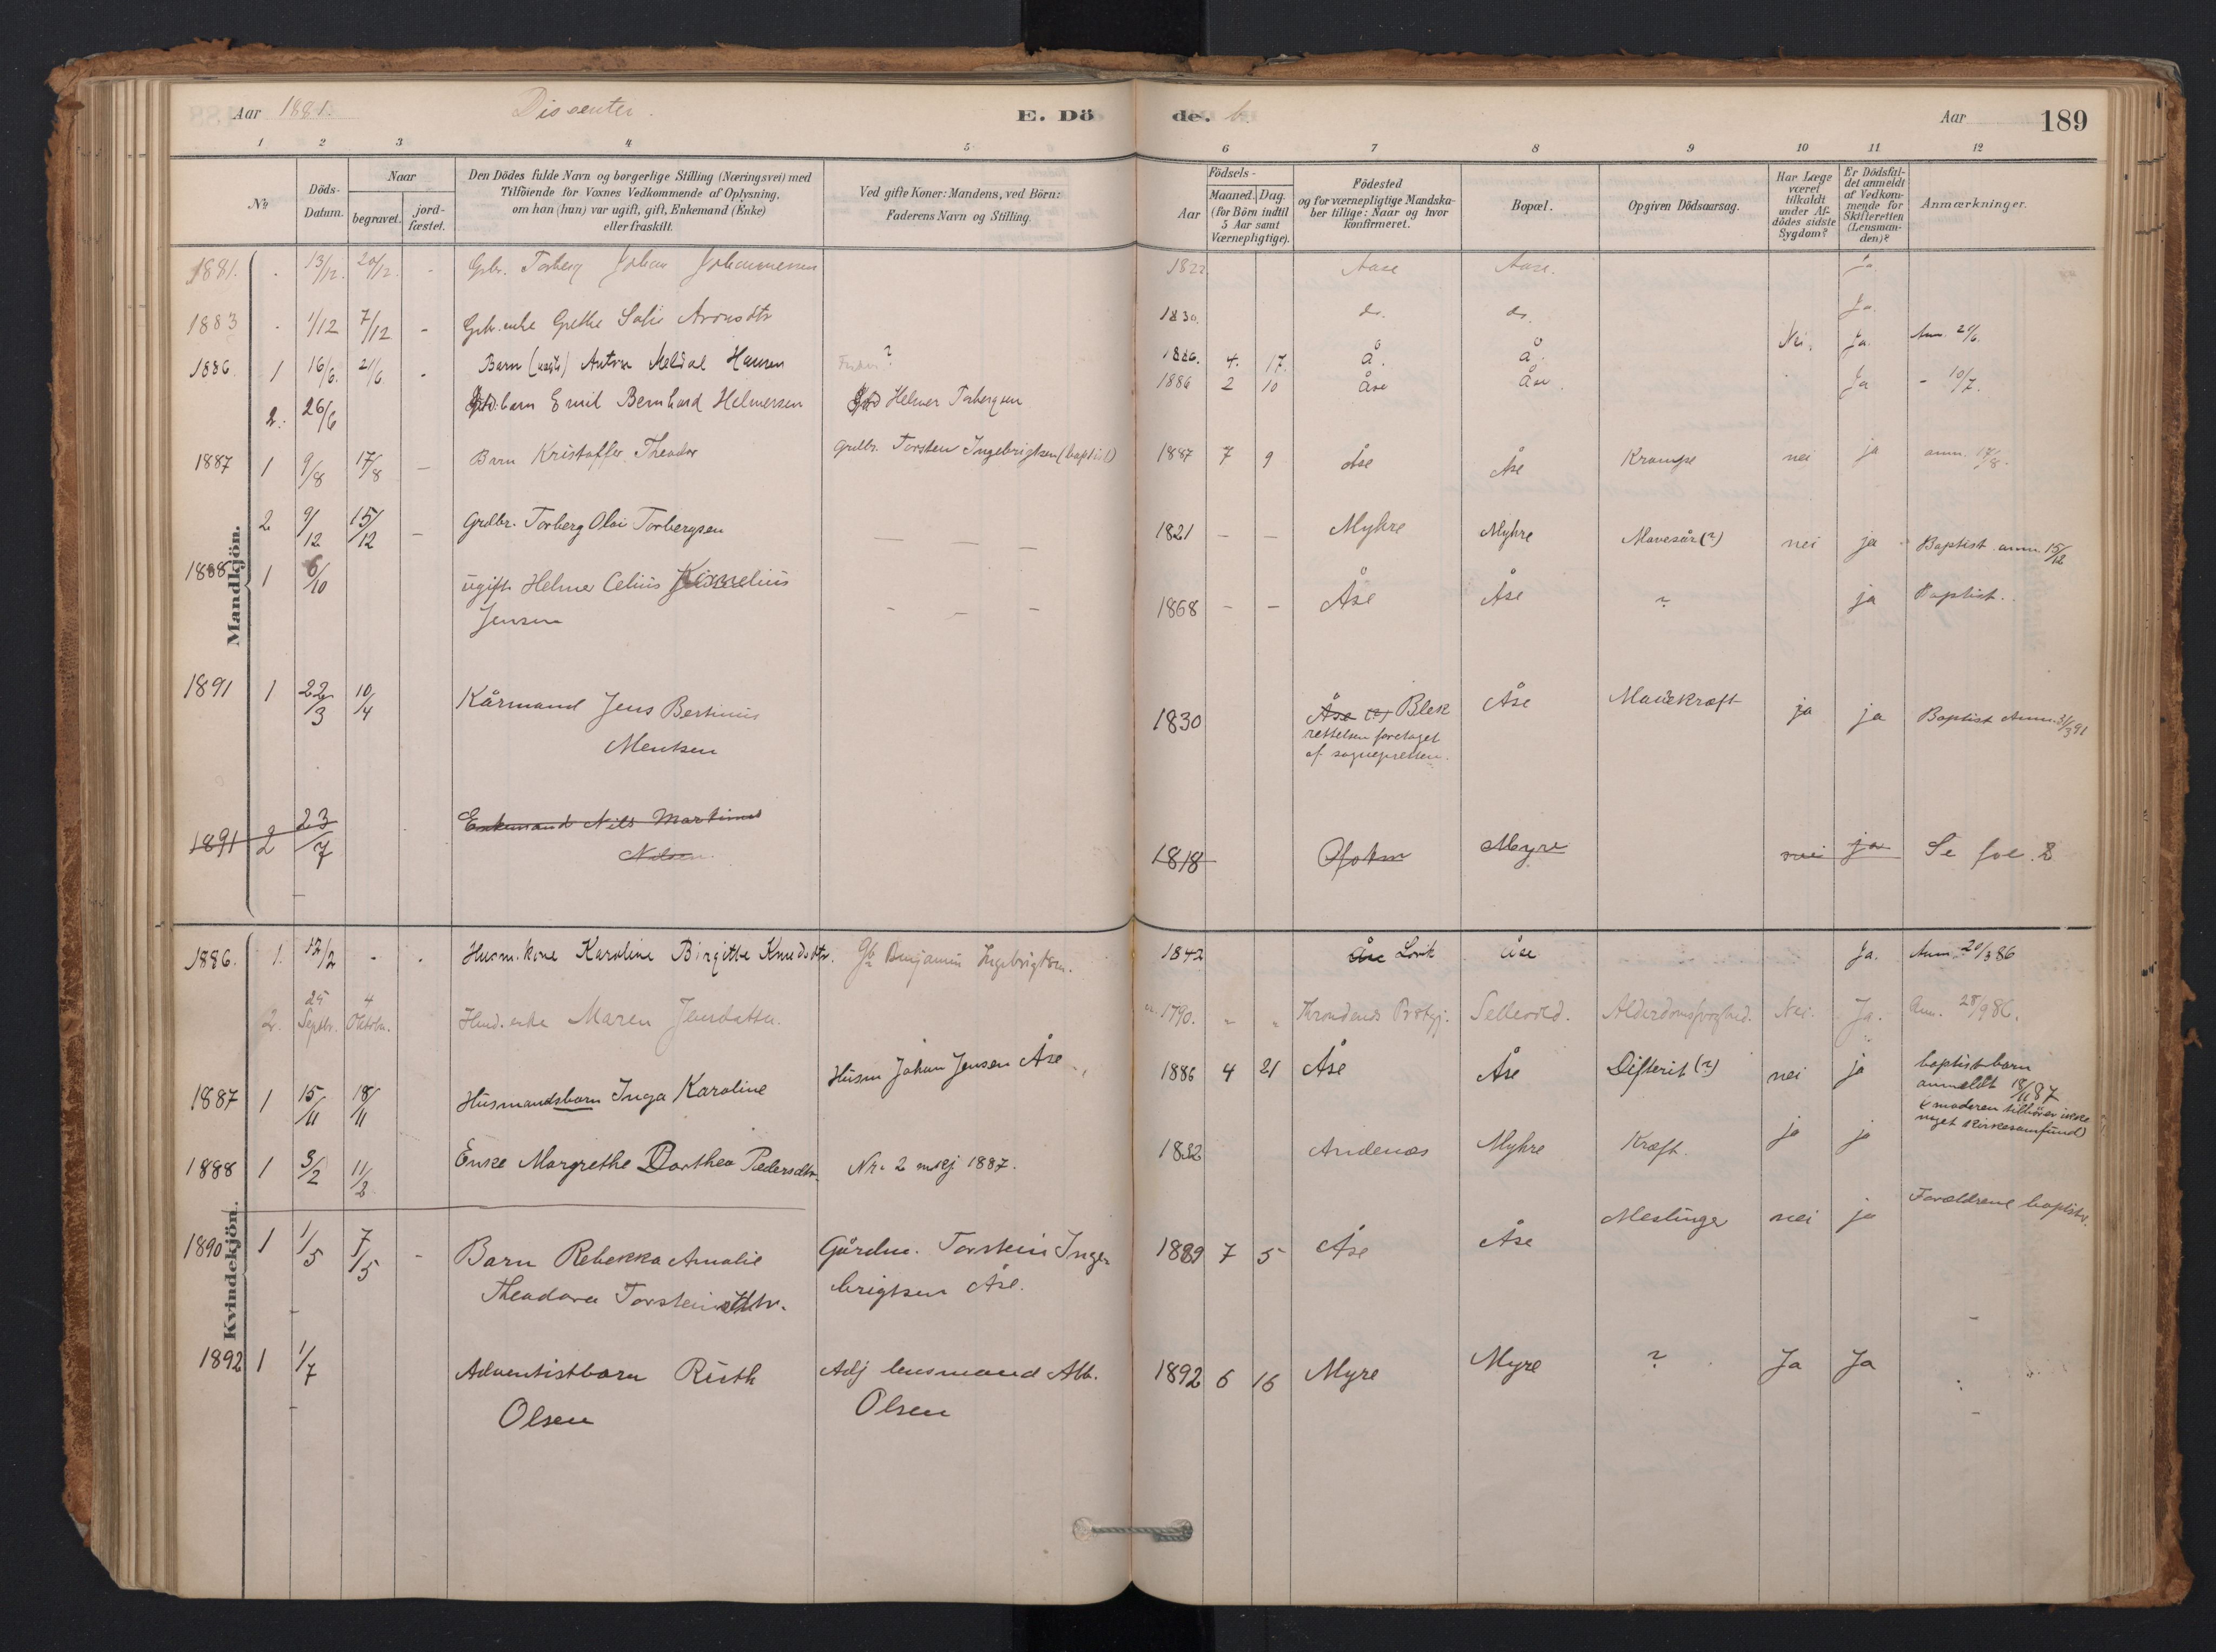 Aar 1881. Dissenter. E. Döde. b. Aar 189
1 2 3 4 5 6 7 8 9 10 11 12
No
Döds-Datum.
Naar
begravet. jord-fæstet.
Den Dödes fulde Navn og borgerlige Stilling (Næringsvei) med
Tilföiende for Voxnes Vedkommende af Oplysning,
om han (hun) var ugift, gift, Enkemand (Enke)
eller fraskilt.
Ved gifte Koner: Mandens, ved Börn:
Faderens Navn og Stilling.
Födsels-
Aar Maaned. Dag.
(for Börn indtil
5 Aar samt
Værnepligtige).
Födested
og for værnepligtige Mandska-
ber tillige: Naar og hvor
konfirmeret.
Bopæl.
Opgiven Dödsaarsag.
Har Læge
været
tilkaldt
under Af-
dödes sidste
Sygdom?
Er Dödsfal-
det anmeldt
af Vedkom-
mende for
Skifteretten
(Lensman-
den)?
Anmærkninger.
Mandkjön.
1881. 13/12. 20/12. - Gbr. Torberg Johan Johannessen 1822 Aase Aase. ja
1883 1/12 7/12 - Gbr. enke Grethe Sofie Aronsdtr 1830. do. do. Ja
1886. 1 16/6. 21/6 - Barn (uægte) Anton Meldal Hansen Fader? 1886. 4. 17. Å. Å. Nei. Ja. Anm. 21/6.
2. 26/6 barn Emil Bernhard Helmersen Helmer Torbergsen 1886 2 10 Åse Åse Ja - 10/7.
1887 1 9/8 17/8 - Barn Kristoffer Theodor Grdbr. Torsten Ingebrigtsen (baptist) 1887 7 9 Åse Åse Krampe nei ja anm. 17/8.
2 9/12 15/12 - Grdbr. Torberg Olai Torbergsen — — — 1821 - - Myhre Myhre Mavesår (?) nei ja Baptist anm. 15/12
1888 1 6/10 ugift Helmer Celius Kornelius
Jensen - - - 1868 - - Åse Åse ? ja Baptist.
1891 1 22/3 10/4 Kårmand Jens Bertinius
Mentsen 1830 Åse (?) Blek Åse Mavekræft ja ja Baptist Anm. 31/3 91
rettelsen foretaget
af sognepresten.
1891 2 23/7 Enkemand Nils Martinus
Nilsen 1818 Ofoten Myre nei ja Se fol. 8
Kvindekjön.
1886. 1. 12/2 - - Husm. kone Karoline Birgitte Knudsdtr. Gb Benjamin Ingebrigtsen. 1842 Åse Lovik Åse Ja. Anm. 20/3 86
2. 25 Septbr. 4 Oktobr. enke Maren Jensdatter. ca. 1790. " " Throndenes Prstgj. Sellevold. Alderdomssvaghed. Nei. Ja. Anm. 28/9 86.
1887 1 15/11 18/11 Husmandsbarn Inga Karoline Husm Johan Jensen Åse 1886 4 21 Åse Åse Difterit (?) nei ja baptistbarn
anmeldt 18/11 87
(moderen tilhører ikke
noget kirkesamfund)
1888 1 3/2 11/2 Enke Margrethe Dorthea Pedersdtr. Nr. 2 mskj 1887. 1832 Andenæs Myhre Kræft. ja ja
1890 1 1/5 7/5 - Barn Rebekka Amalie Gårdm. Torstein Inge- 1889 7 5 Åse Åse Meslinger nei ja Forældrene baptister.
Theodora Torsteinsdtr. brigtsen Åse.
1892 1 1/7 Adventistbarn Ruth Adj lensmand Alb. 1892 6 16 Myre Myre ? Ja Ja
Olsen Olsen